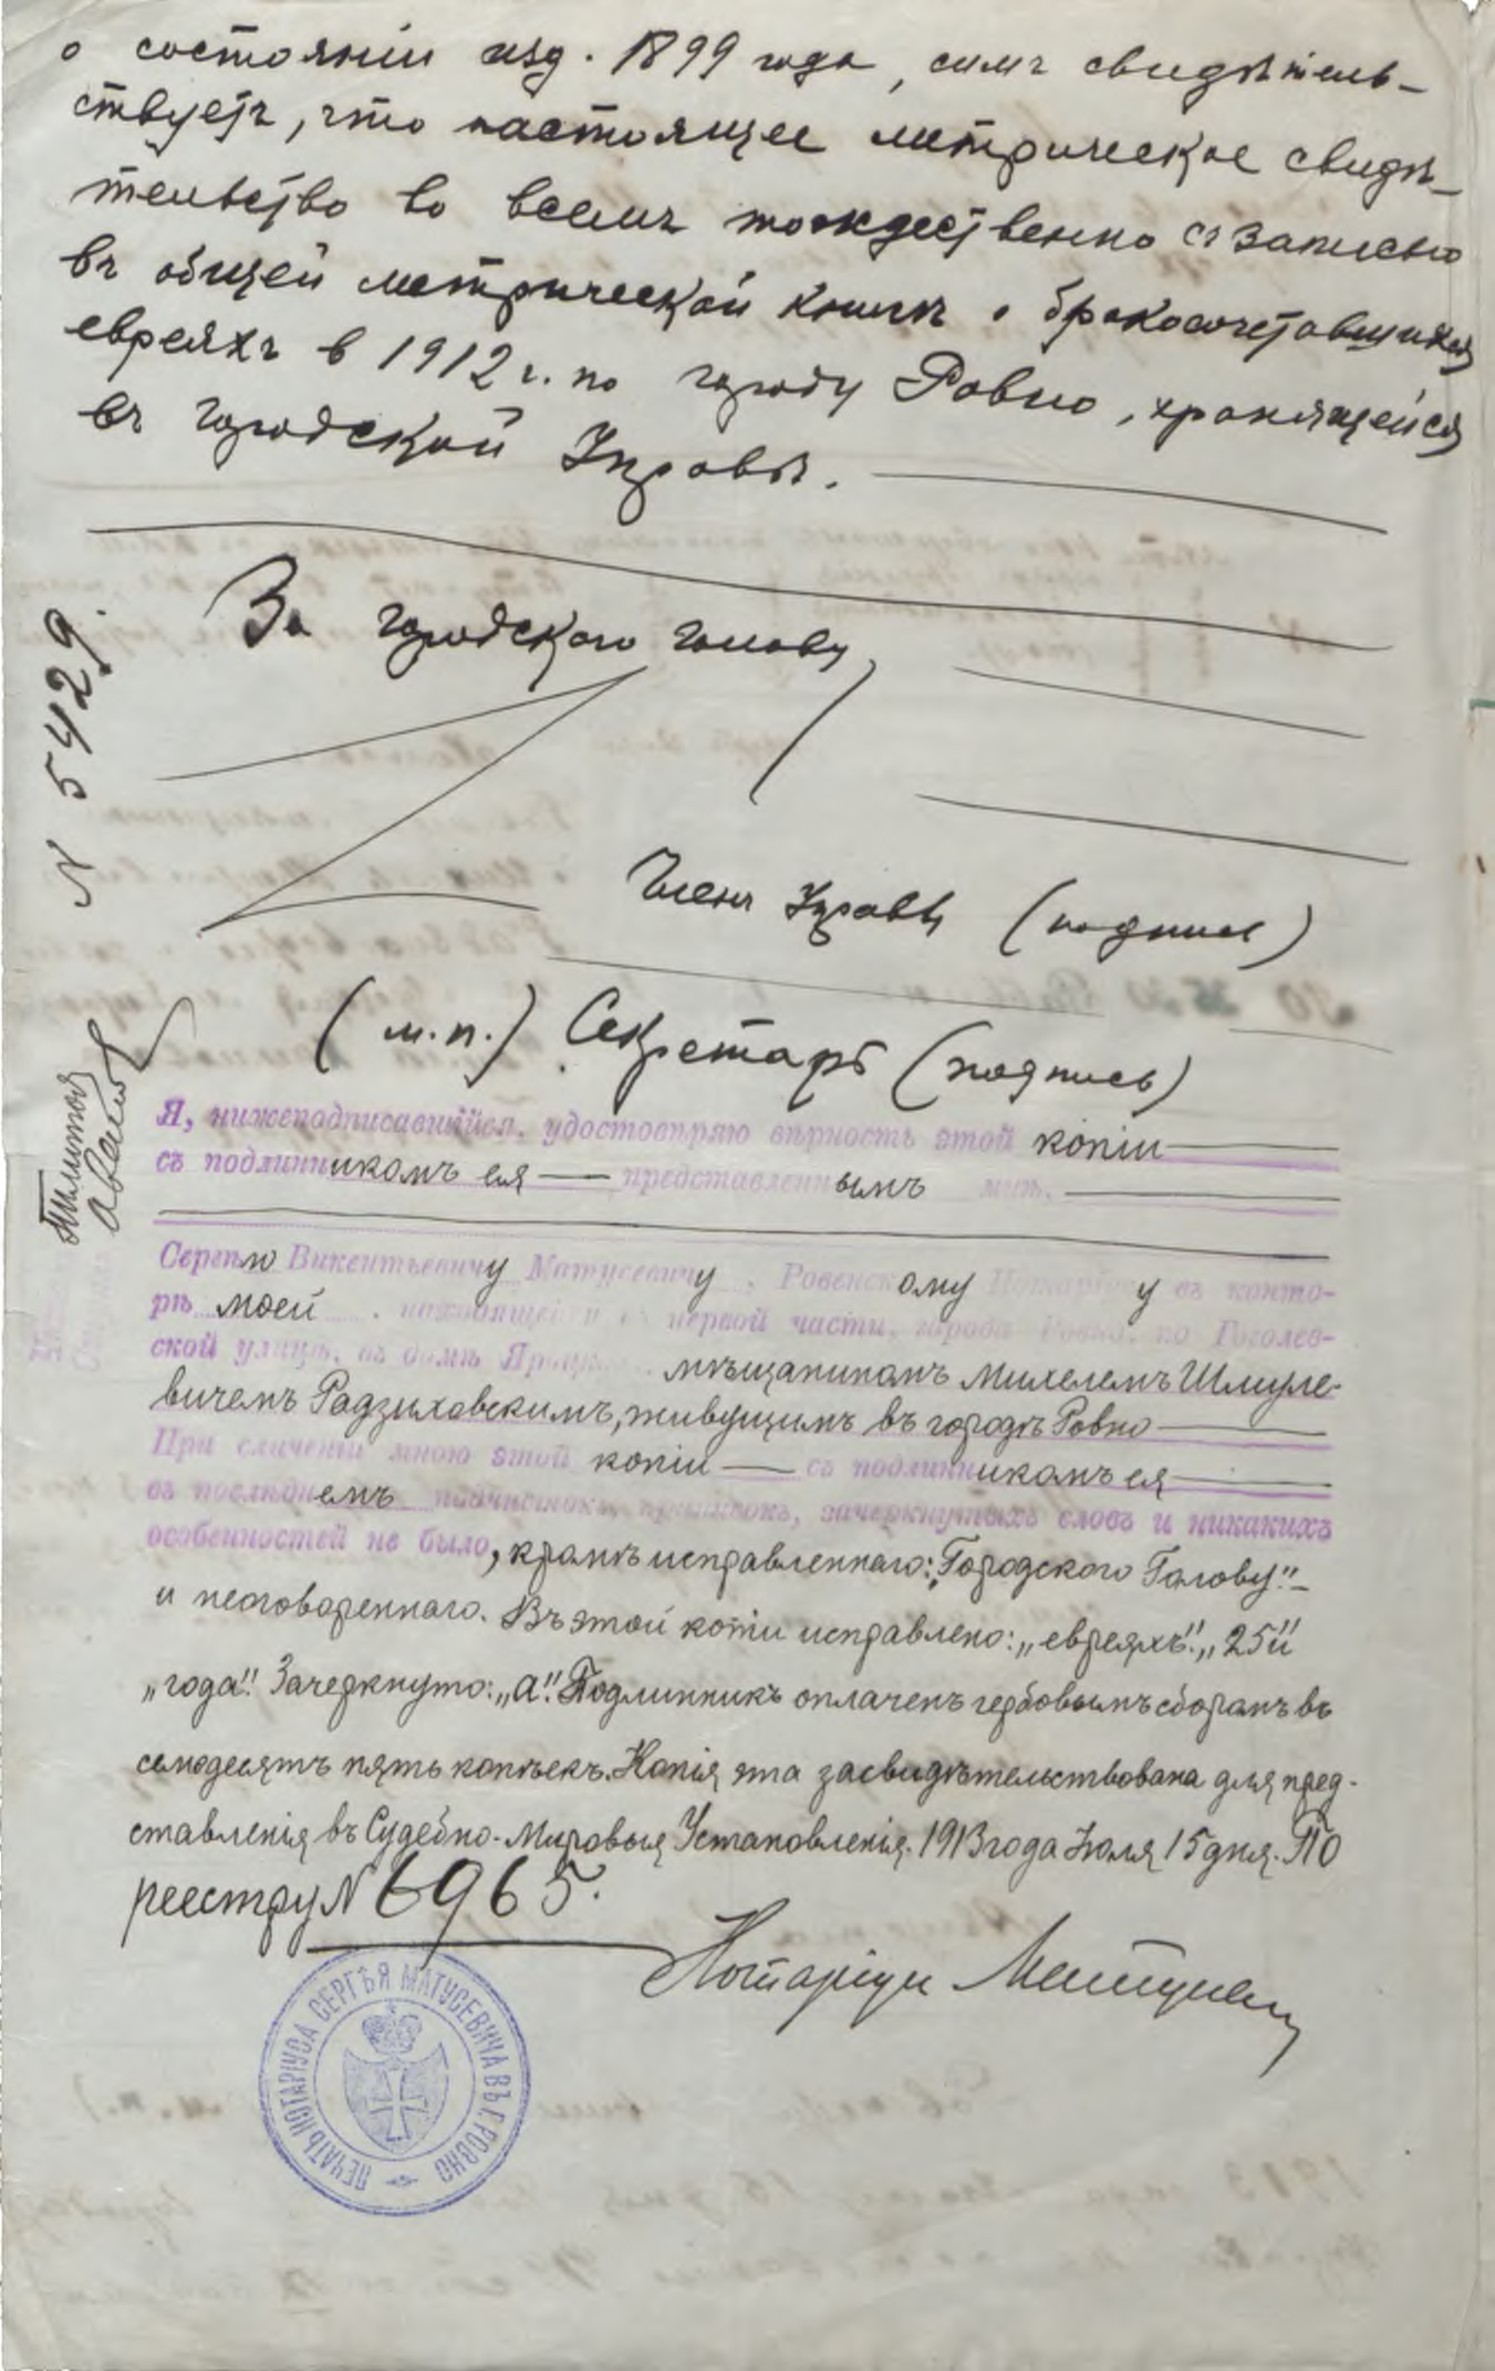 о состоянiи изд. 1899 года, симъ свидѣтель-
ствуетъ, что настоящее метрическое свидѣ-
тельство во всемъ тождественно съ записью
въ общей метрической книгѣ о бракосочетавшихся
евреяхъ в 1912 г. по городу Ровно, хранящейся
въ городской Управѣ.
За городского голову,
Членъ Управы (подпись)
(м.п.) Секретарь (подпись)
N 5429.
Я, нижеподписавшiйся, удостовѣряю вѣрность этой копiи
съ подлинникомъ ея представленнымъ мнѣ,
Сергѣю Викентьевичу Матусевичу, Ровенскому Нотарiусу въ конто-
рѣ моей, находящейся въ первой части, города Ровно, по Гоголев-
ской улицѣ, въ домѣ мѣщаниномъ Михелемъ Шмуле-
вичемъ Радзиховскимъ, живущимъ въ городѣ Ровно
При сличенiи мною этой копiи съ подлинникомъ ея
въ послѣднемъ подчистокъ, приписокъ, зачеркнутыхъ словъ и никакихъ
особенностей не было, кромѣ исправленнаго: „Городского Голову"
и неоговореннаго. Въ этой копiи исправлено: „евреяхъ", „25й"
„года". Зачеркнуто: „а". Подлинникъ оплаченъ гербовымъ сборомъ въ
семьдесятъ пять копѣекъ. Копiя эта засвидѣтельствована для пред-
ставленiя въ Судебно-Мировыя Установленiя. 1913 года Iюля 15 дня. По
реестру N 6965.
Нотарiусъ Матусевичъ
ПЕЧАТЬ НОТАРIУСА СЕРГѢЯ МАТУСЕВИЧА ВЪ Г. РОВНО